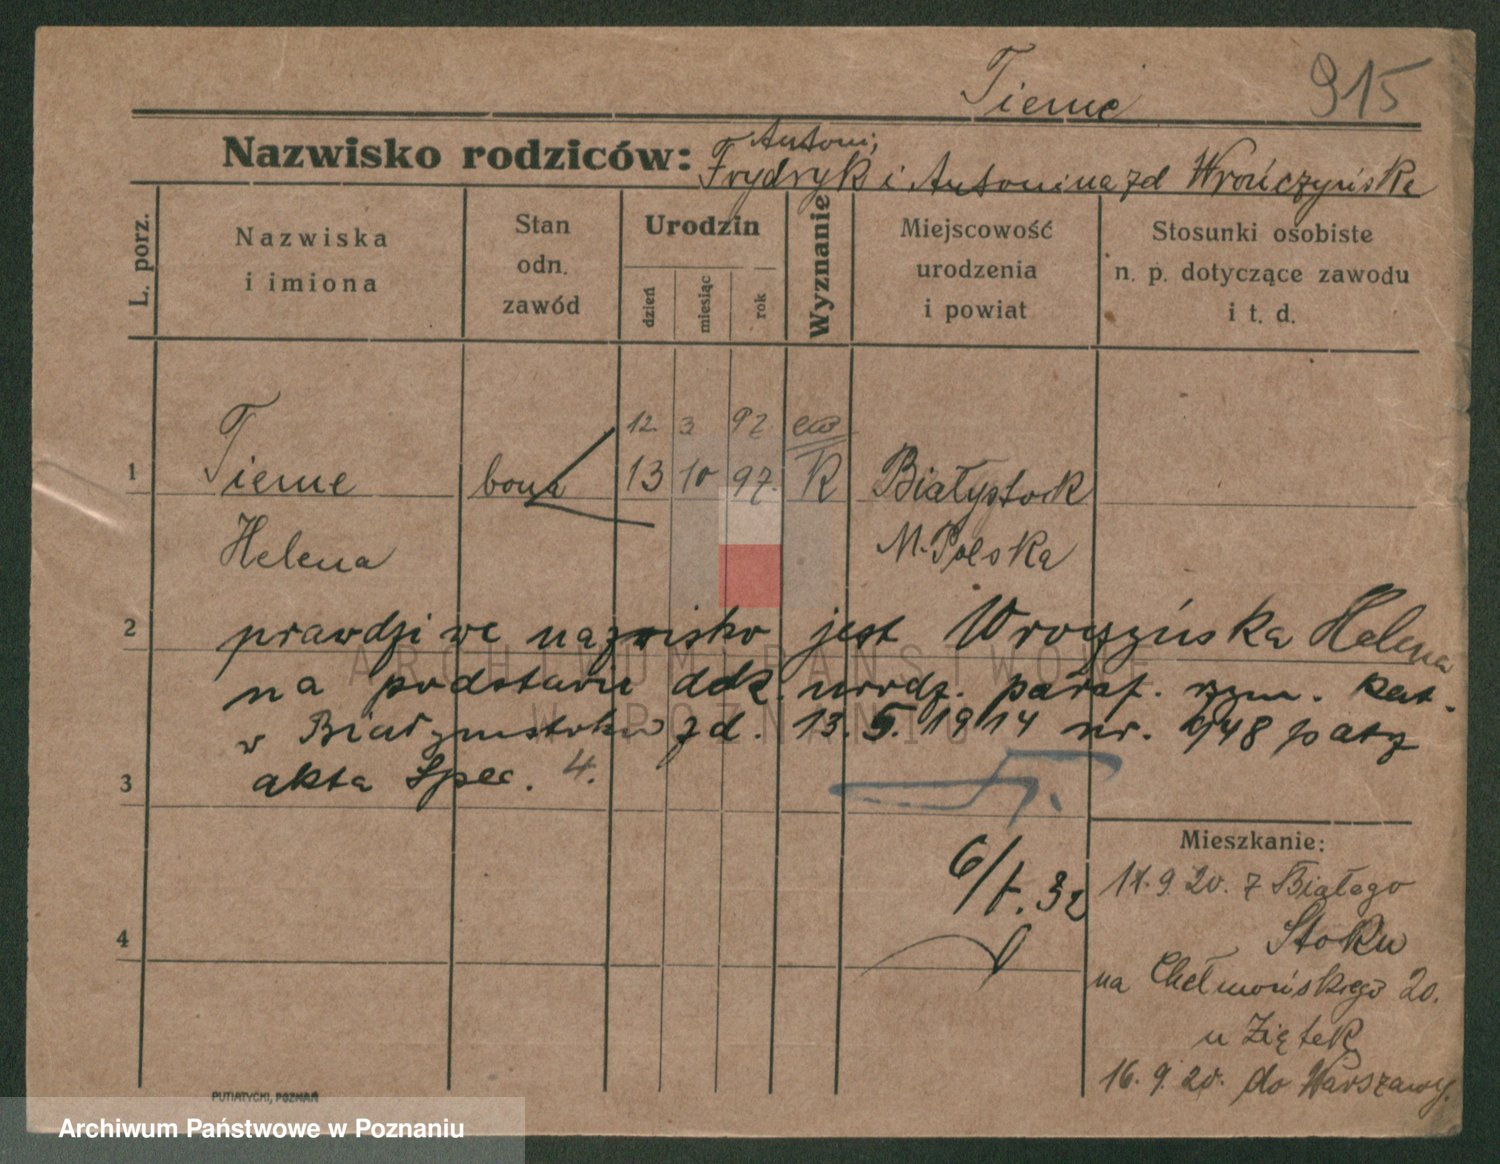 Tieme
915
Nazwisko rodziców: Frydryk Antoni, i Antonina zd Wrończyńska
L. porz.
Nazwiska
i imiona
Stan
odn.
zawód
Urodzin
dzień
miesiąc
rok
Wyznanie
Miejscowość
urodzenia
i powiat
Stosunki osobiste
n. p. dotyczące zawodu
i t. d.
12. 3 92 ew
1 Tieme bona 13 10 97. K Białystock
Helena M. Polska
2 prawdziwe nazwisko jest Wroczyńska Helena
na podstawie dok. urodz. paraf. rzym. kat.
w Białymstoku zd. 13. 5. 1914 nr. 948 patz
3 akta Spec. 4.
6/1. 32
4
Mieszkanie:
11. 9. 20. z Białego
Stoku
na Chełmońskiego 20.
u Ziętek
16. 9. 20. do Warszawy.
PUTIATYCKI, POZNAŃ
ARCHIWUM PAŃSTWOWE
W POZNANIU
Archiwum Państwowe w Poznaniu